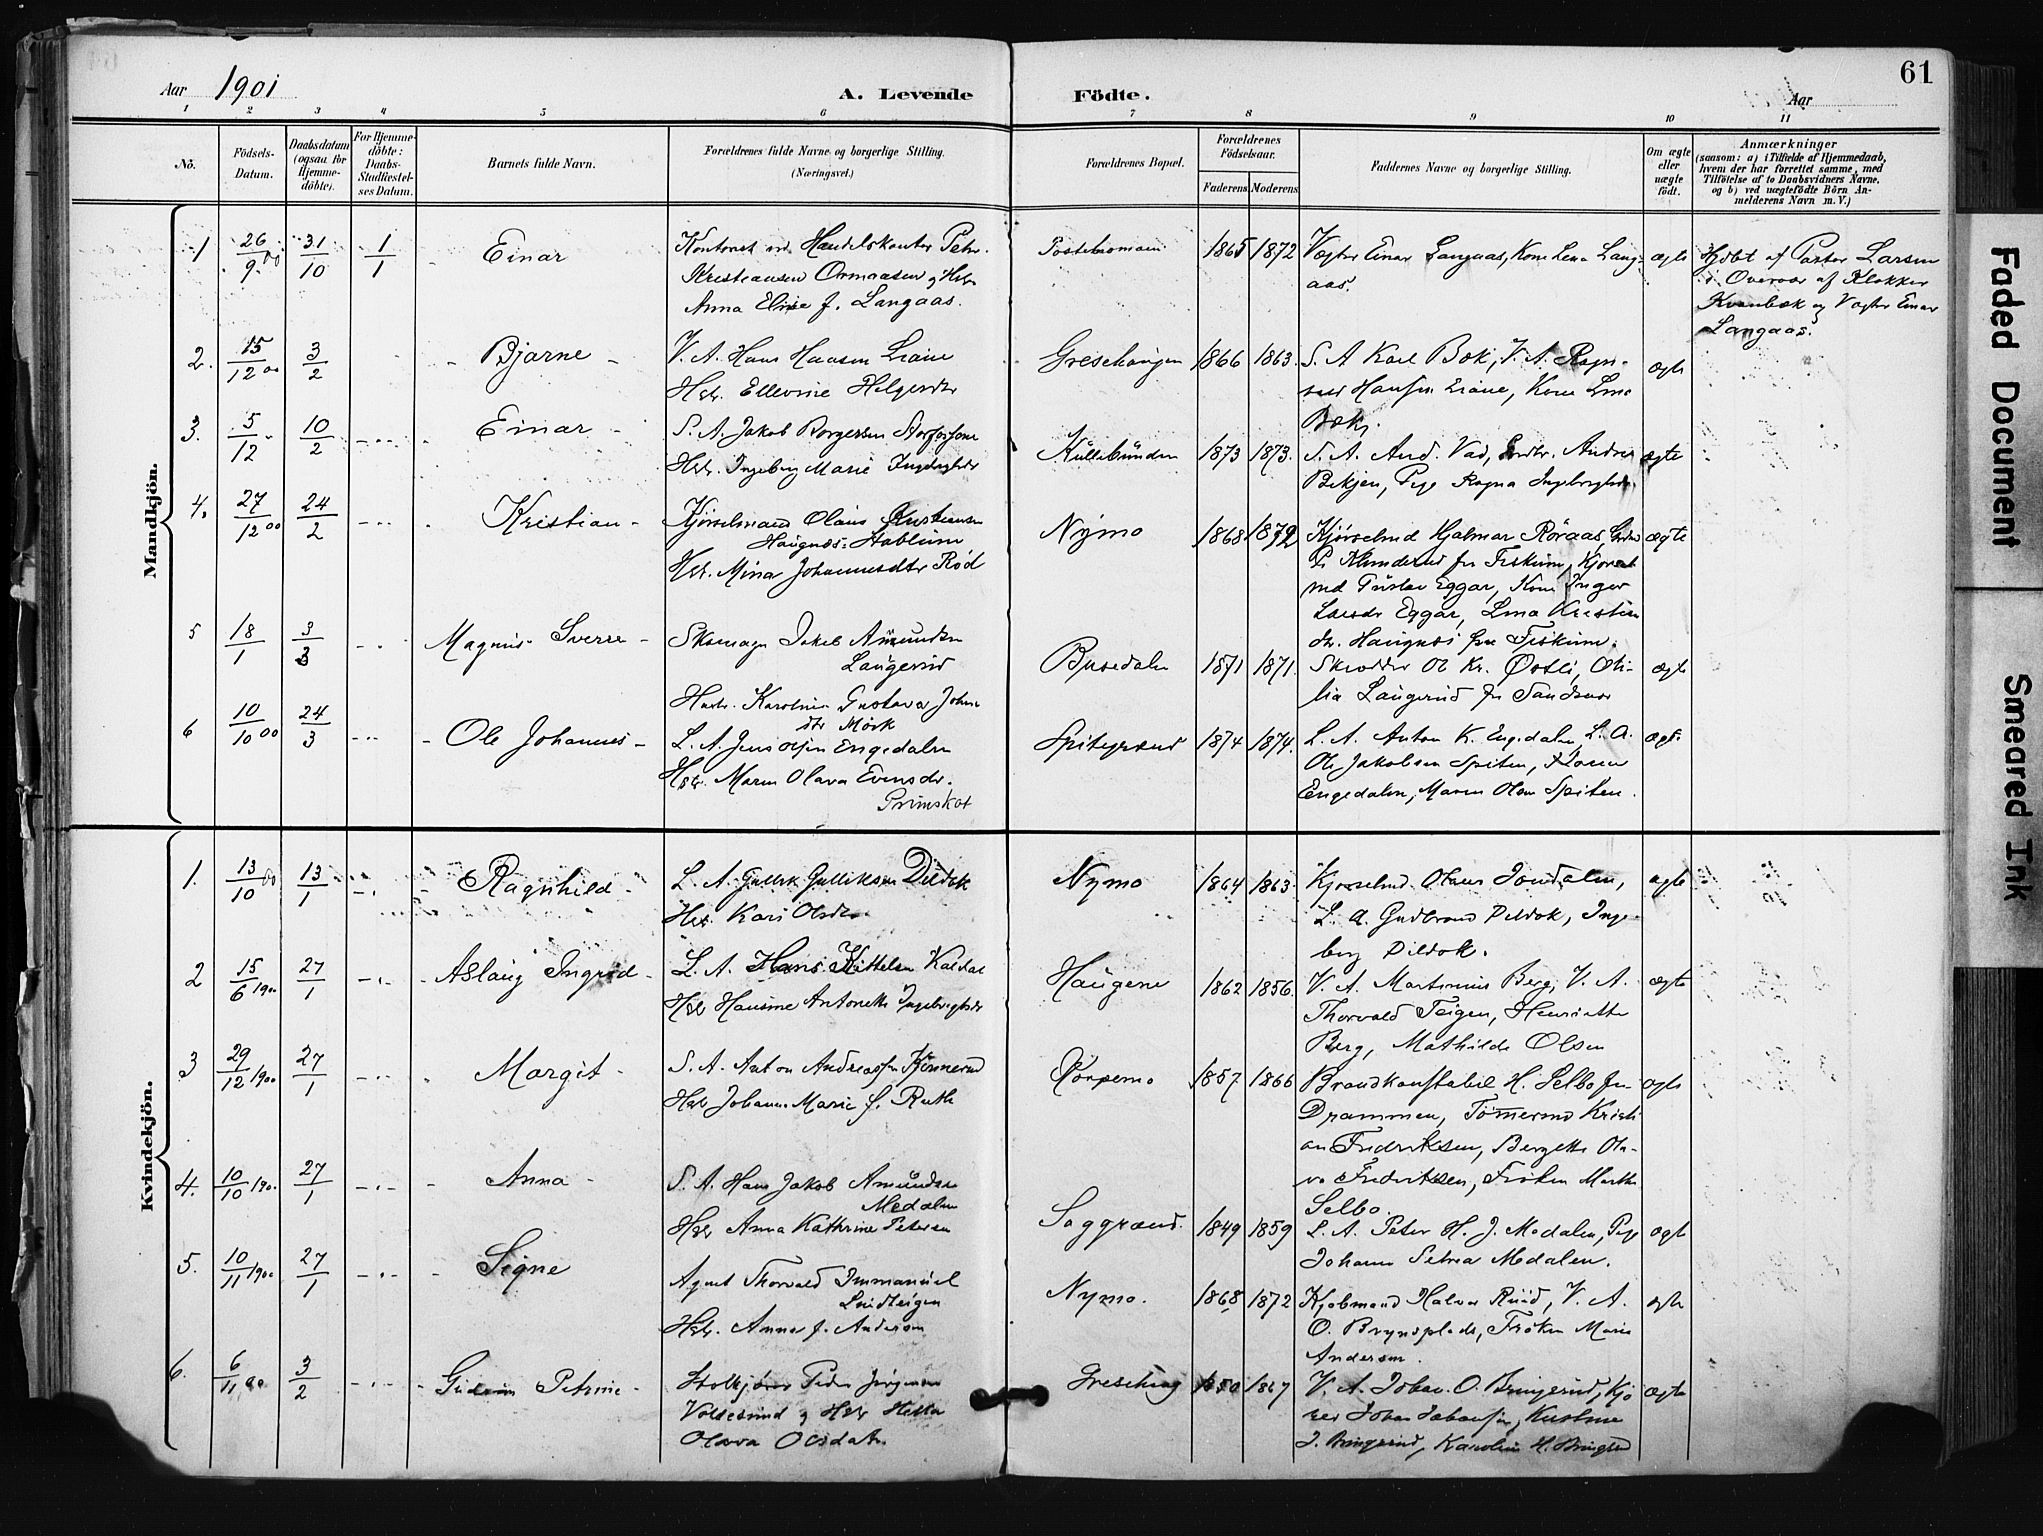 Aar 1901
A. Levende
Födte.
Aar
61
1 2 3 4 5 6 7 8 9 10 11
No.
Födsels-
Datum.
Daabsdatum
(ogsaa for
Hjemme-
döbte).
For Hjemme-
döbte:
Daabs-
Stadfæstel-
ses Datum.
Barnets fulde Navn.
Forældrenes fulde Navne og borgerlige Stilling.
(Næringsvei.)
Forældrenes Bopæl.
Forældrenes
Födselsaar.
Faderens Moderens
Faddernes Navne og borgerlige Stilling.
Om ægte
eller
uægte
födt.
Anmærkninger
(saasom: a) i Tilfælde af Hjemmedaab,
hvem der har forrettet samme, med
Tilföielse af to Daabsvidners Navne.
og b) ved uægtefödte Börn An-
melderens Navn m. V.)
Mandkjön.
1 26/9 00 31/10 1/1 Einar
Anna Elise f. Langaas.
1865 1872
Vægter Einar Langaas, Kone Lena Lang-
aas.
ægte
Hjdbt af Pastor Larsen
i Overvær af Klokker
Kvanbæk og Vægter Einar
Langaas.
2. 15/12 00 3/2 Bjarne
V. A. Hans Hansen Liane
Hstr. Ellevine Helgesdtr
1866 1863.
ægte
3. 5/12 10/2 Einar
S. A. Jakob Borgersen
Hstr. Ingeborg Marie
1873 1873.
S. A. And. Vad,
Bekjen, Pige Ragna
ægte
4. 27/12 00 24/2 Kristian
Kjörselmand Olaus Kristiansen
Hstr. Mina Johannesdtr Röd
Nymo
1868 1872
Kjörselmd Hjalmar Röraas
fra Fiskum,
md Gustav Eggar, Kone Inger
Eggar, Lina Kristian
dtr. Haugnæs fra Fiskum.
ægte
5 18/1 3/3 Magnus Sverre
Skomager Jakob Amundsen
Laugerud
Hustr. Karoline Gustava Johns
dtr Mörk
Busedalen
1871 1871.
Skrædder Ol Kr. Östli, Oti-
lia Laugerud fra Sandsvær
ægte
6 10/10 00 24/3 Ole Johannes
L. A. Jens Olsen Engedalen
Hstr. Maren Olava Evensdr.
Grimskot
Spitengrænd
1874 1874.
L. A. Anton K. Engedalen, L. A.
Ole Jakobsen Spiten,
Engedalen, Maren Olava Spiten.
ægte
Kvindekjön.
1. 13/10 00 13/1 Ragnhild
L. A. Gullik Gulliksen Dildok
Hstr Kari Olsdtr.
Nymo
1864 1863
Kjörselmd Olaus Jondalen,
L. A. Gudbrand Dildok, Inge-
borg Dildok.
ægte
2 15/6 1900 27/1 Aslaug Ingrid
L. A. Hans Kittelsen Kaldal
Hstr Hansine Antonette Ingebrigtsdtr
Haugene
1862 1856.
V. A. Martinius Berg, V. A.
Thorvald Teigen, Henriette
Berg, Mathilde Olsen
ægte
3 29/12 1900 27/1 Margit
S. A. Anton Andreassen Kjennerud
Hstr Johanne Marie f. Ruth
1857 1866
Brandkonstabel H. Selbo fra
Drammen, Tömermd Kristi-
an Fredriksen, Bergette Ola-
va Fredriksen, Fröken Marthe
Selbo.
ægte
4. 10/10 190. 27/1 Anna
S. A. Hans Jakob Amundsen
Medalen
Hstr Anna Kathrine Petersen
Saggrænd.
1849 1859
L. A. Peter H. J. Medalen, Pige
Johanne Petrea Medalen.
ægte
5. 10/11 1900 27/1 Signe
Agent Thorvald Immanuel
Lindteigen
Hstr. Anna f. Andersen
Nymo.
1868 1872
Kjöbmand Halvor Ruud, V. A.
O. Brynsplads, Fröken Marie
Andersen.
ægte
6. 6/11 00 3/2 Gudrun Petrine
Peder Jörgensen
og Hstr
Olava Olsdatr.
1850 1867
V. A. Johan O. Bringerud,
Johan Johansen,
J. Bringerud, Karoline H.
ægte
Faded Document
Smeared Ink